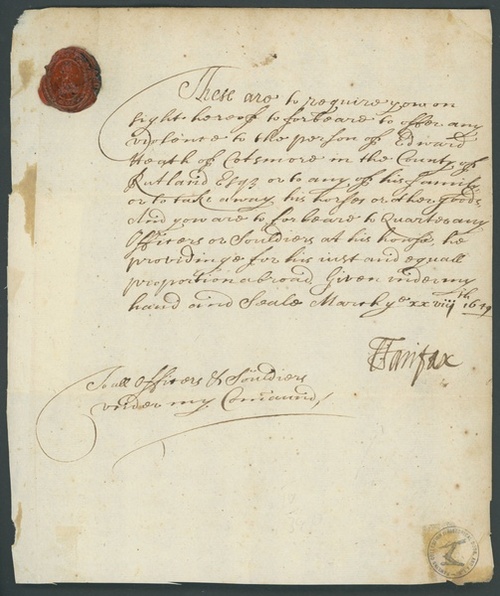 These are to require yow on
sight hereof to forbeare to offer any
violence to the person of Edward
Heath of Cotsmore in the County of
Rutland Esqz or to any of his family
or to take away his horses or other goods,
And yow are to forbeare to Quarter any
Officers or Souldiers at his house, he
providinge for his iust and equall
proportion abroad Given under my
hand and Seale March ye xxviijth 1649
TFairfax
To all Officers & Souldiers
vnder my Comaund/